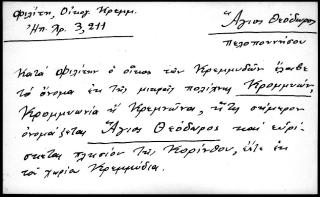 Φιλίτης, Οἶκος Κρεμμ.
Ἠπ. Χρ. 3, 211
Ἅγιος Θεόδωρος
Πελοποννήσου
Κατὰ Φιλίτην ὁ οἶκος τῶν Κρεμμυδῶν ἔλαβε
τὸ ὄνομα ἐκ τῆς μικρᾶς πολίχνης Κρομμυών,
Κρομμυωνία ἢ Κρεμνῶνα, ἥτις σήμερον
ὀνομάζεται Ἅγιος Θεόδωρος καὶ εὑρί-
σκεται πλησίον τῆς Κορίνθου, εἴτε ἐκ
τοῦ χωρίου Κρεμμύδια.